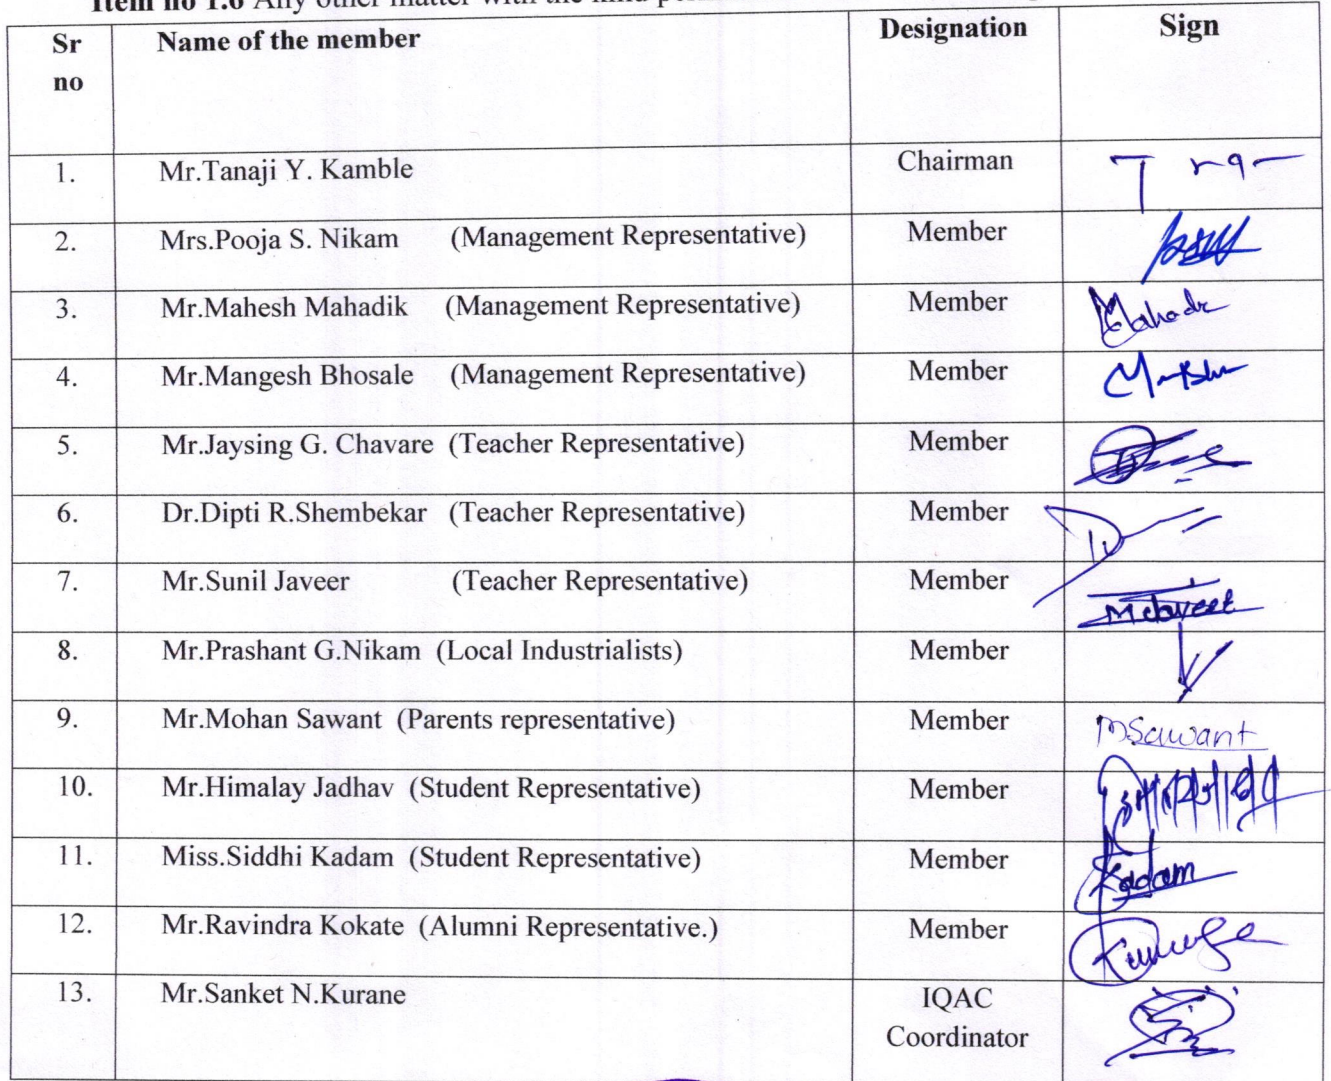 Item no 1.6 Any other matter with the kind
Sr no Name of the member Designation Sign
1. Mr.Tanaji Y. Kamble Chairman
2. Mrs.Pooja S. Nikam (Management Representative) Member
3. Mr.Mahesh Mahadik (Management Representative) Member
4. Mr.Mangesh Bhosale (Management Representative) Member
5. Mr.Jaysing G. Chavare (Teacher Representative) Member
6. Dr.Dipti R.Shembekar (Teacher Representative) Member
7. Mr.Sunil Javeer (Teacher Representative) Member
8. Mr.Prashant G.Nikam (Local Industrialists) Member
9. Mr.Mohan Sawant (Parents representative) Member MSawant
10. Mr.Himalay Jadhav (Student Representative) Member
11. Miss.Siddhi Kadam (Student Representative) Member Kadam
12. Mr.Ravindra Kokate (Alumni Representative.) Member
13. Mr.Sanket N.Kurane IQAC Coordinator